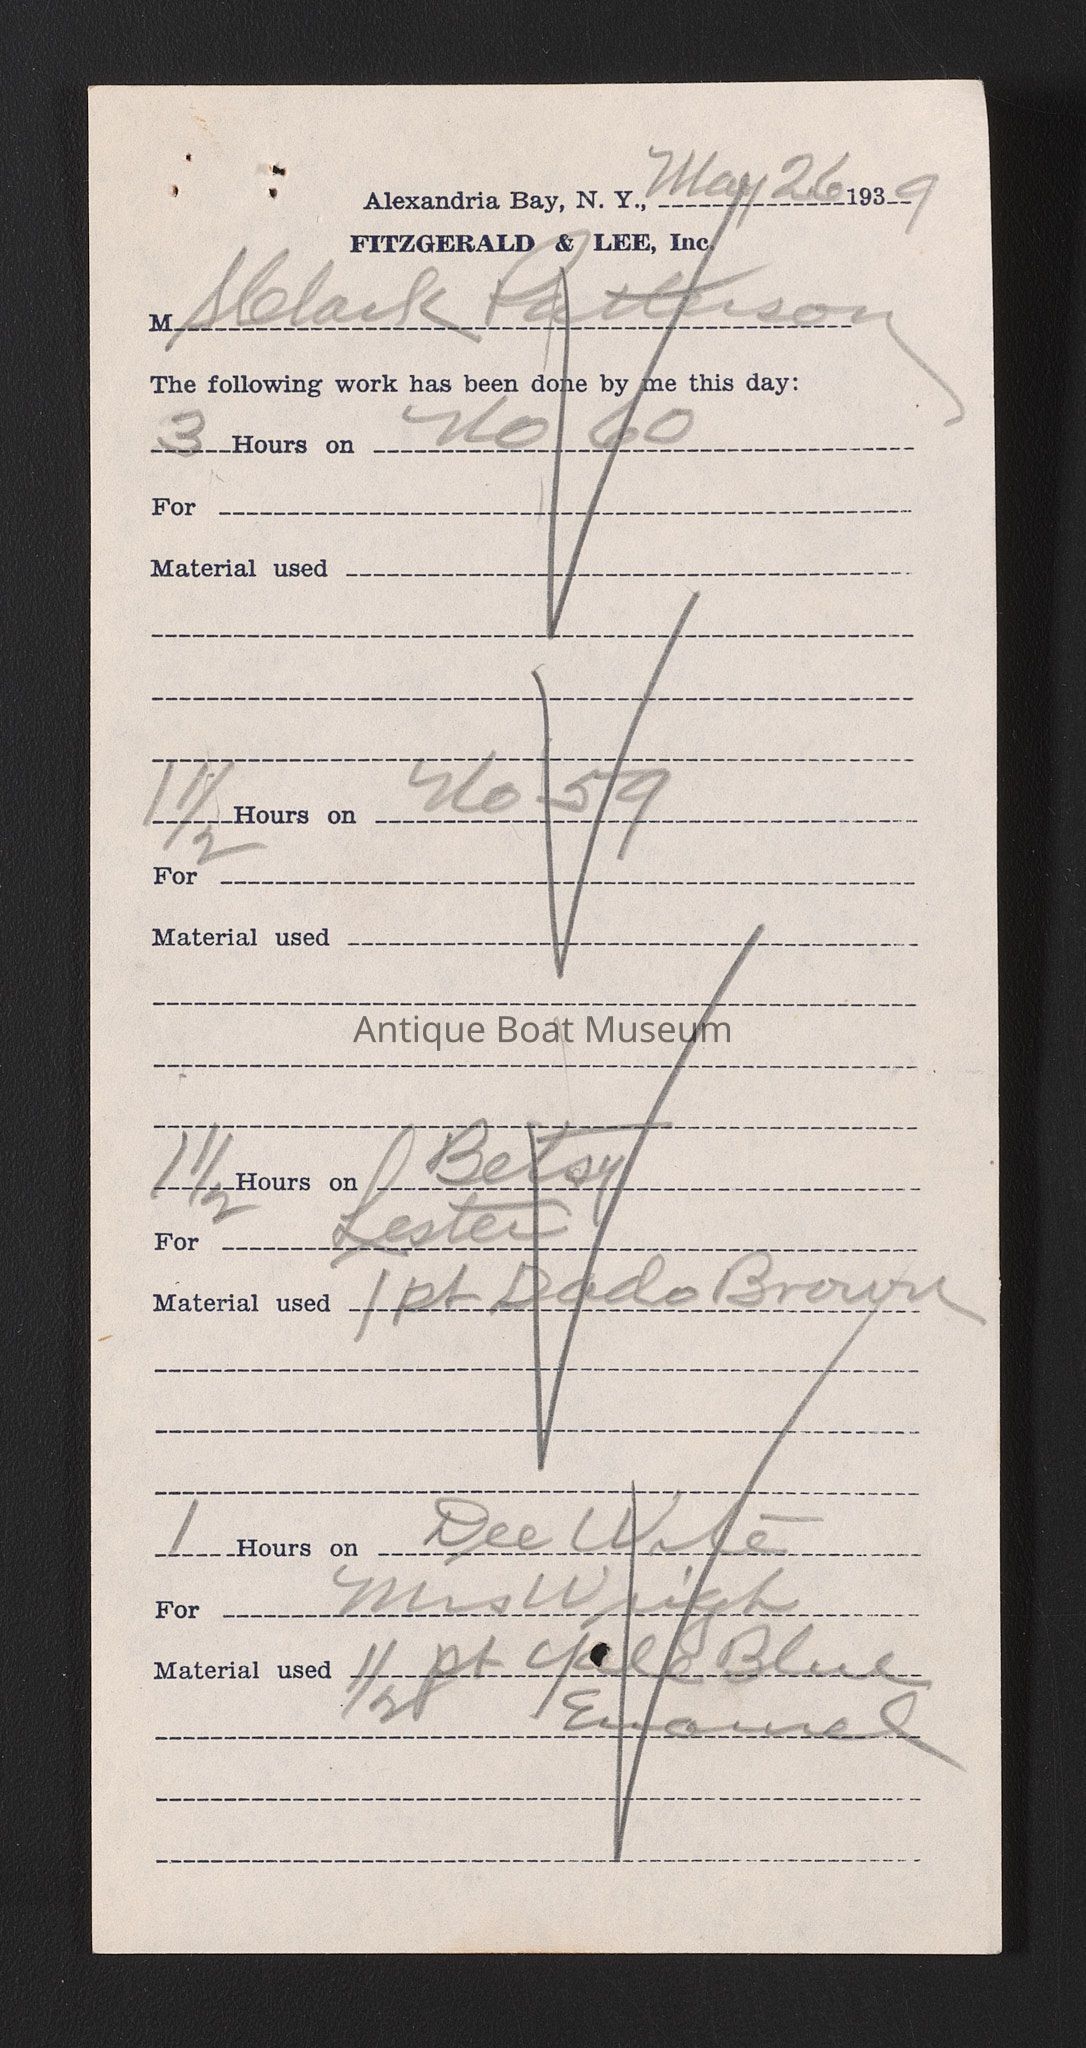 Alexandria Bay, N. Y., May 26 1939
FITZGERALD & LEE, Inc.
M Clark Patterson
The following work has been done by me this day:
3 Hours on No 60
For
Material used
1 1/2 Hours on No 59
For
Material used
Antique Boat Museum
1 1/2 Hours on Betsy
For Lester
Material used 1 pt Dado Brown
1 Hours on Dee Wite
For Mrs Wrigh
Material used 1/2 pt Yale Blue
Enamel